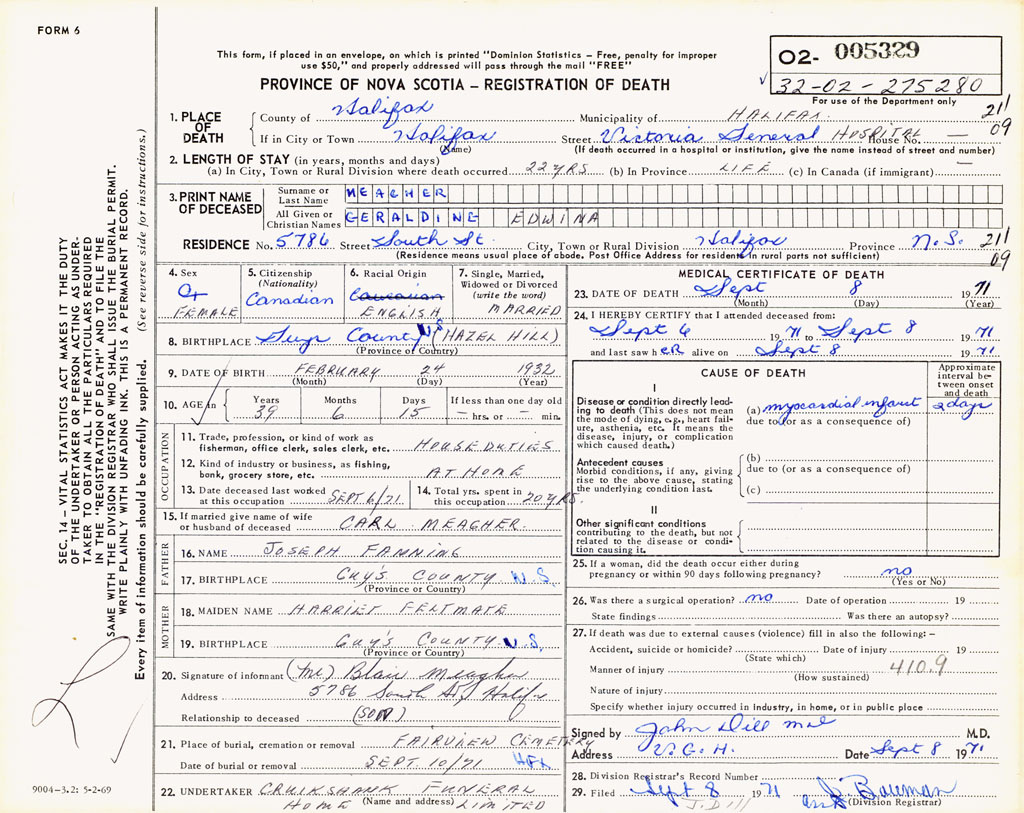 FORM 6
This form, if placed in an envelope, on which is printed "Dominion Statistics – Free, penalty for improper
use $50," and properly addressed will pass through the mail "FREE"
PROVINCE OF NOVA SCOTIA – REGISTRATION OF DEATH
02- 005329
32-02-275280
For use of the Department only
211
09
1. PLACE OF DEATH
County of Halifax Municipality of HALIFAX
If in City or Town Halifax Street Victoria General HOSPITAL House No. —
(Name) (If death occurred in a hospital or institution, give the name instead of street and number)
2. LENGTH OF STAY (in years, months and days)
(a) In City, Town or Rural Division where death occurred 22 YRS (b) In Province LIFE (c) In Canada (if immigrant) —
3. PRINT NAME OF DECEASED
Surname or Last Name MEAGHER
All Given or Christian Names GERALDINE EDWINA
RESIDENCE No. 5786 Street South St. City, Town or Rural Division Halifax Province N.S. 211
09
(Residence means usual place of abode. Post Office Address for residents in rural parts not sufficient)
4. Sex
FEMALE
5. Citizenship
(Nationality)
Canadian
6. Racial Origin
Caucasian
ENGLISH
7. Single, Married,
Widowed or Divorced
(write the word)
MARRIED
8. BIRTHPLACE Guys County N.S. (HAZEL HILL)
(Province or Country)
9. DATE OF BIRTH FEBRUARY 24 1932
(Month) (Day) (Year)
10. AGE in
Years 39
Months 6
Days 15
If less than one day old
— hrs. or — min.
OCCUPATION
11. Trade, profession, or kind of work as
fisherman, office clerk, sales clerk, etc. HOUSE DUTIES
12. Kind of industry or business, as fishing,
bank, grocery store, etc. AT HOME
13. Date deceased last worked
at this occupation SEPT 6/71
14. Total yrs. spent in
this occupation 20 YRS.
15. If married give name of wife
or husband of deceased CARL MEAGHER
FATHER
16. NAME JOSEPH FANNING
17. BIRTHPLACE GUY'S COUNTY N.S.
(Province or Country)
MOTHER
18. MAIDEN NAME HARRIET FELTMATE
19. BIRTHPLACE GUY'S COUNTY N.S.
(Province or Country)
20. Signature of informant (Mr) Blair Meagher
Address 5786 South St, Halifx
Relationship to deceased (SON)
21. Place of burial, cremation or removal FAIRVIEW CEMETERY
Date of burial or removal SEPT 10/71 HFX
22. UNDERTAKER CRUIKSHANK FUNERAL
HOME (Name and address) LIMITED
MEDICAL CERTIFICATE OF DEATH
23. DATE OF DEATH Sept 8 1971
(Month) (Day) (Year)
24. I HEREBY CERTIFY that I attended deceased from:
Sept 6 1971 to Sept 8 1971
and last saw her alive on Sept 8 1971
CAUSE OF DEATH
Approximate
interval be-
tween onset
and death
I
Disease or condition directly lead-
ing to death (This does not mean
the mode of dying, e.g., heart fail-
ure, asthenia, etc. It means the
disease, injury, or complication
which caused death.)
(a) myocardial infarct 2 days
due to (or as a consequence of)
Antecedent causes
Morbid conditions, if any, giving
rise to the above cause, stating
the underlying condition last.
(b)
due to (or as a consequence of)
(c)
II
Other significant conditions
contributing to the death, but not
related to the disease or condi-
tion causing it.
25. If a woman, did the death occur either during
pregnancy or within 90 days following pregnancy? no
(Yes or No)
26. Was there a surgical operation? no Date of operation 19
State findings Was there an autopsy?
27. If death was due to external causes (violence) fill in also the following: –
Accident, suicide or homicide? Date of injury 19
(State which)
Manner of injury 410.9
(How sustained)
Nature of injury
Specify whether injury occurred in industry, in home, or in public place
Signed by John Dill M.D.
Address V.G.H. Date Sept 8 1971
28. Division Registrar's Record Number
29. Filed Sept 8 1971 Bauman
J. Dill (Division Registrar)
SEC. 14 – VITAL STATISTICS ACT MAKES IT THE DUTY
OF THE UNDERTAKER OR PERSON ACTING AS UNDER-
TAKER TO OBTAIN ALL THE PARTICULARS REQUIRED
IN THE "REGISTRATION OF DEATH" AND TO FILE THE
SAME WITH THE DIVISION REGISTRAR WHO SHALL ISSUE THE BURIAL PERMIT.
WRITE PLAINLY WITH UNFADING INK. THIS IS A PERMANENT RECORD.
Every item of information should be carefully supplied. (See reverse side for instructions.)
9004-3.2: 5-2-69